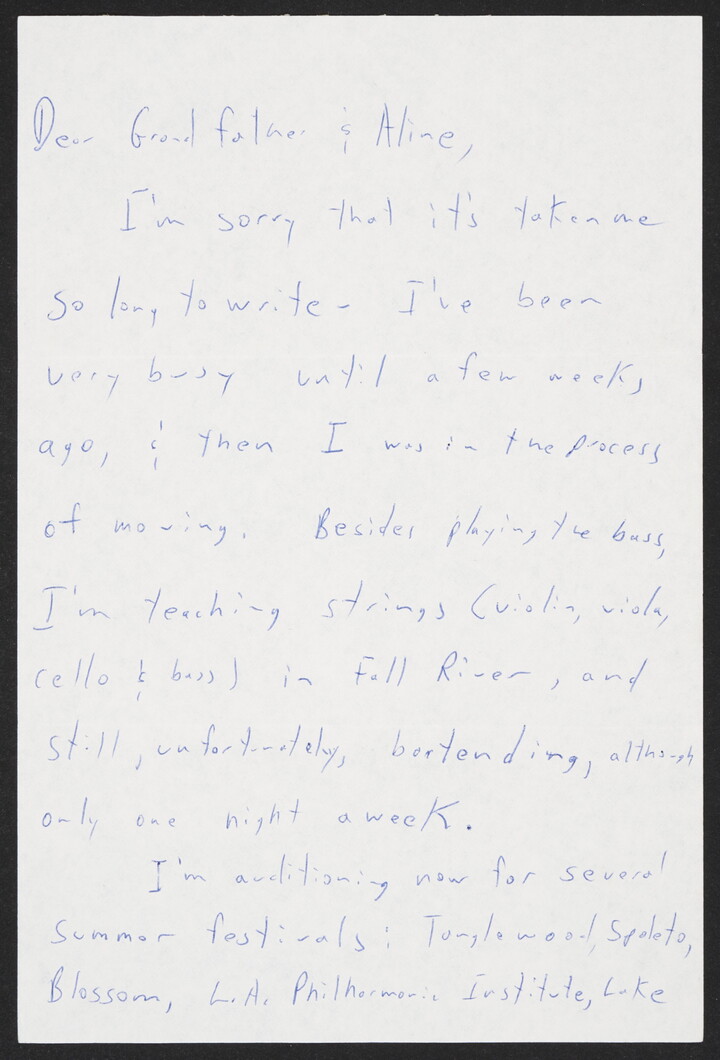 Dear Grandfather & Aline,
I'm sorry that it's taken me
so long to write - I've been
very busy until a few weeks
ago, & then I was in the process
of moving. Besides playing the bass,
I'm teaching strings (violin, viola,
cello & bass) in Fall River, and
still, unfortunately, bartending, although
only one night a week.
I'm auditioning now for several
summer festivals: Tanglewood, Spoleto,
Blossom, L.A. Philharmonic Institute, Lake